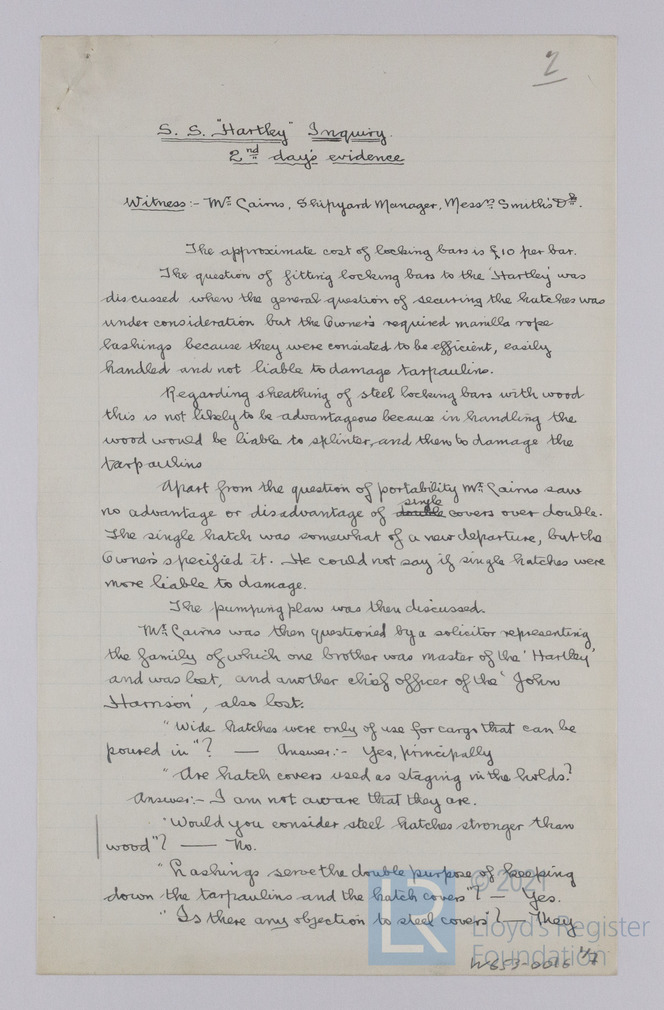 2
S. S. "Hartley" Inquiry.
2nd day's evidence
Witness:- Mr. Cairns, Shipyard Manager, Messrs. Smith's Dk.
The approximate cost of locking bars is £10 per bar.
The question of fitting locking bars to the 'Hartley' was
discussed when the general question of securing the hatches was
under consideration but the Owner's required manilla rope
lashings because they were consisted to be efficient, easily
handled and not liable to damage tarpaulins.
Regarding sheathing of steel locking bars with wood
this is not likely to be advantageous because in handling the
wood would be liable to splinter, and then to damage the
tarpaulins
Apart from the question of portability Mr. Cairns saw
single
no advantage or disadvantage of double covers over double.
The single hatch was somewhat of a new departure, but the
Owner's specified it. He could not say if single hatches were
more liable to damage.
The pumping plan was then discussed.
Mr. Cairns was then questioned by a solicitor representing
the family of which one brother was master of the 'Hartley'
and was lost, and another chief officer of the 'John
Harrison', also lost.
"Wide hatches were only of use for cargo that can be
poured in"? — Answer:- Yes, principally
"Are hatch covers used as staging in the holds?
Answer:- I am not aware that they are.
"Would you consider steel hatches stronger than
wood"? — No.
"Lashings serve the double purpose of keeping
down the tarpaulins and the hatch covers"? — Yes.
"Is there any objection to steel covers"? — They
LR © 2021
Lloyd's Register
Foundation
W653-0016 1/7